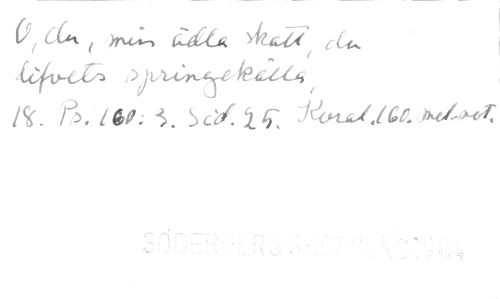 O, du, min ädla skatt, du
lifvets springekälla,
18. Ps. 160: 3. Sid. 25. Koral. 160. mel-not.
SÖDERBERG